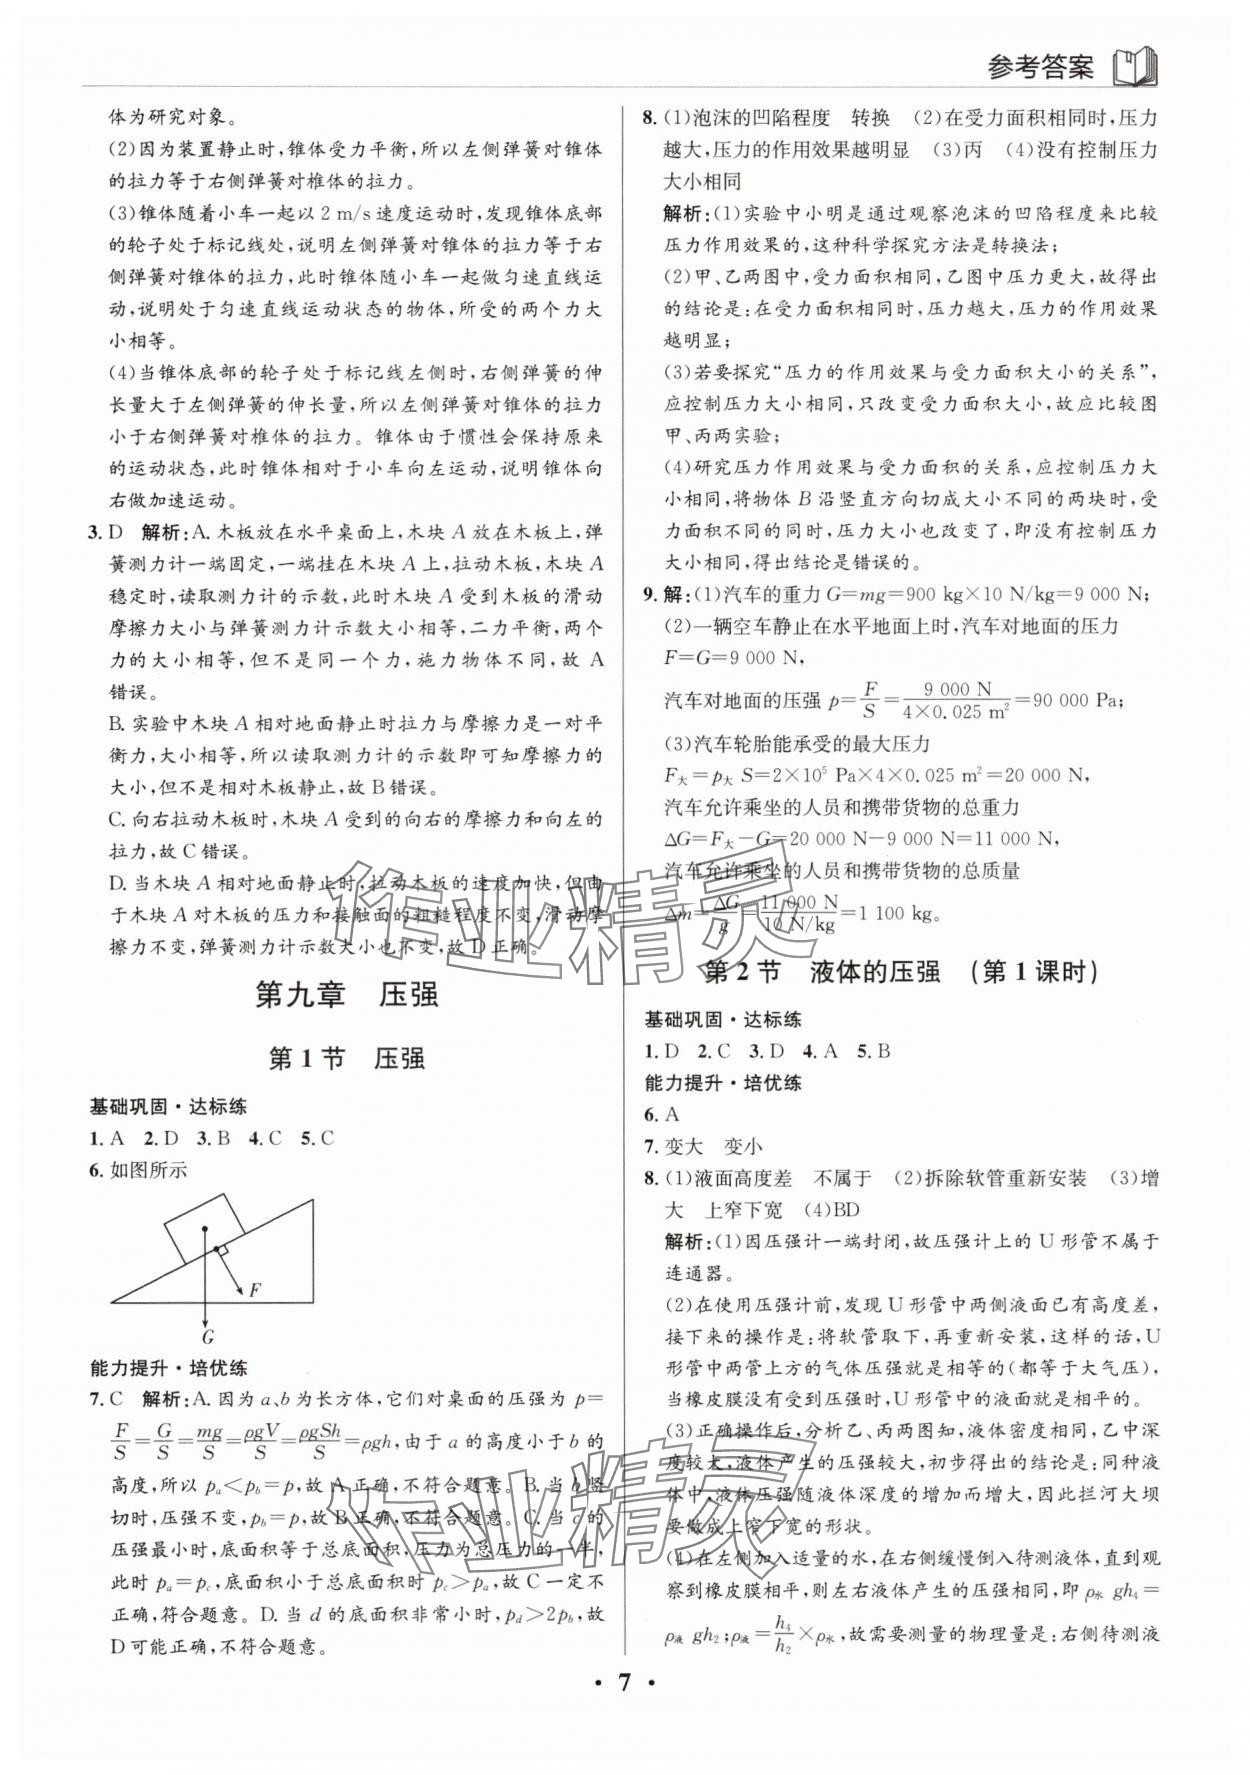 参考答案
体为研究对象。
(2)因为装置静止时,锥体受力平衡,所以左侧弹簧对锥体
的拉力等于右侧弹簧对椎体的拉力。
(3)锥体随着小车一起以 2 m/s 速度运动时,发现锥体底部
的轮子处于标记线处,说明左侧弹簧对锥体的拉力等于右
侧弹簧对锥体的拉力,此时锥体随小车一起做匀速直线运
动,说明处于匀速直线运动状态的物体,所受的两个力大
小相等。
(4)当锥体底部的轮子处于标记线左侧时,右侧弹簧的伸
长量大于左侧弹簧的伸长量,所以左侧弹簧对锥体的拉力
小于右侧弹簧对椎体的拉力。锥体由于惯性会保持原来
的运动状态,此时锥体相对于小车向左运动,说明锥体向
右做加速运动。
3. D 解析:A. 木板放在水平桌面上,木块 A 放在木板上,弹
簧测力计一端固定,一端挂在木块 A 上,拉动木板,木块 A
稳定时,读取测力计的示数,此时木块 A 受到木板的滑动
摩擦力大小与弹簧测力计示数大小相等,二力平衡,两个
力的大小相等,但不是同一个力,施力物体不同,故 A
错误。
B. 实验中木块 A 相对地面静止时拉力与摩擦力是一对平
衡力,大小相等,所以读取测力计的示数即可知摩擦力的
大小,但不是相对木板静止,故 B 错误。
C. 向右拉动木板时,木块 A 受到的向右的摩擦力和向左的
拉力,故 C 错误。
D. 当木块 A 相对地面静止时,拉动木板的速度加快,但由
于木块 A 对木板的压力和接触面的粗糙程度不变,滑动摩
擦力不变,弹簧测力计示数大小也不变,故 D 正确。
第九章 压强
第 1 节 压强
基础巩固·达标练
1. A 2. D 3. B 4. C 5. C
6. 如图所示
F
G
能力提升·培优练
7. C 解析:A. 因为 a、b 为长方体,它们对桌面的压强为 p=
F/S=G/S=mg/S=ρgV/S=ρgSh/S=ρgh,由于 a 的高度小于 b 的
高度,所以 pₐ<p_b=p,故 A 正确,不符合题意。B. 当 b 竖
切时,压强不变,p_b=p,故 B 正确,不符合题意。C. 当 c 的
压强最小时,底面积等于总底面积,压力为总压力的一半,
此时 pₐ=p_c,底面积小于总底面积时 p_c>pₐ,故 C 一定不
正确,符合题意。D. 当 d 的底面积非常小时,p_d>2p_b,故
D 可能正确,不符合题意。
8. (1)泡沫的凹陷程度 转换 (2)在受力面积相同时,压力
越大,压力的作用效果越明显 (3)丙 (4)没有控制压力
大小相同
解析:(1)实验中小明是通过观察泡沫的凹陷程度来比较
压力作用效果的,这种科学探究方法是转换法;
(2)甲、乙两图中,受力面积相同,乙图中压力更大,故得出
的结论是:在受力面积相同时,压力越大,压力的作用效果
越明显;
(3)若要探究“压力的作用效果与受力面积大小的关系”,
应控制压力大小相同,只改变受力面积大小,故应比较图
甲、丙两实验;
(4)研究压力作用效果与受力面积的关系,应控制压力大
小相同,将物体 B 沿竖直方向切成大小不同的两块时,受
力面积不同的同时,压力大小也改变了,即没有控制压力
大小相同,得出结论是错误的。
9. 解:(1)汽车的重力 G=mg=900 kg×10 N/kg=9 000 N;
(2)一辆空车静止在水平地面上时,汽车对地面的压力
F=G=9 000 N,
汽车对地面的压强 p=F/S=9 000 N/(4×0.025 m²)=90 000 Pa;
(3)汽车轮胎能承受的最大压力
F大=p大 S=2×10⁵ Pa×4×0.025 m²=20 000 N,
汽车允许乘坐的人员和携带货物的总重力
ΔG=F大-G=20 000 N-9 000 N=11 000 N,
汽车允许乘坐的人员和携带货物的总质量
Δm=ΔG/g=11 000 N/(10 N/kg)=1 100 kg。
第 2 节 液体的压强 (第 1 课时)
基础巩固·达标练
1. D 2. C 3. D 4. A 5. B
能力提升·培优练
6. A
7. 变大 变小
8. (1)液面高度差 不属于 (2)拆除软管重新安装 (3)增
大 上窄下宽 (4)BD
解析:(1)因压强计一端封闭,故压强计上的 U 形管不属于
连通器。
(2)在使用压强计前,发现 U 形管中两侧液面已有高度差,
接下来的操作是:将软管取下,再重新安装,这样的话,U
形管中两管上方的气体压强就是相等的(都等于大气压),
当橡皮膜没有受到压强时,U 形管中的液面就是相平的。
(3)正确操作后,分析乙、丙两图知,液体密度相同,乙中深
度较大,液体产生的压强较大,初步得出的结论是:同种液
体中,液体压强随液体深度的增加而增大,因此拦河大坝
要做成上窄下宽的形状。
(4)在左侧加入适量的水,在右侧缓慢倒入待测液体,直到观
察到橡皮膜相平,则左右液体产生的压强相同,即 ρ水 gh₄=
ρ液 gh₂;ρ液=h₄/h₂×ρ水,故需要测量的物理量是:右侧待测液
· 7 ·
作业精灵
作业精灵